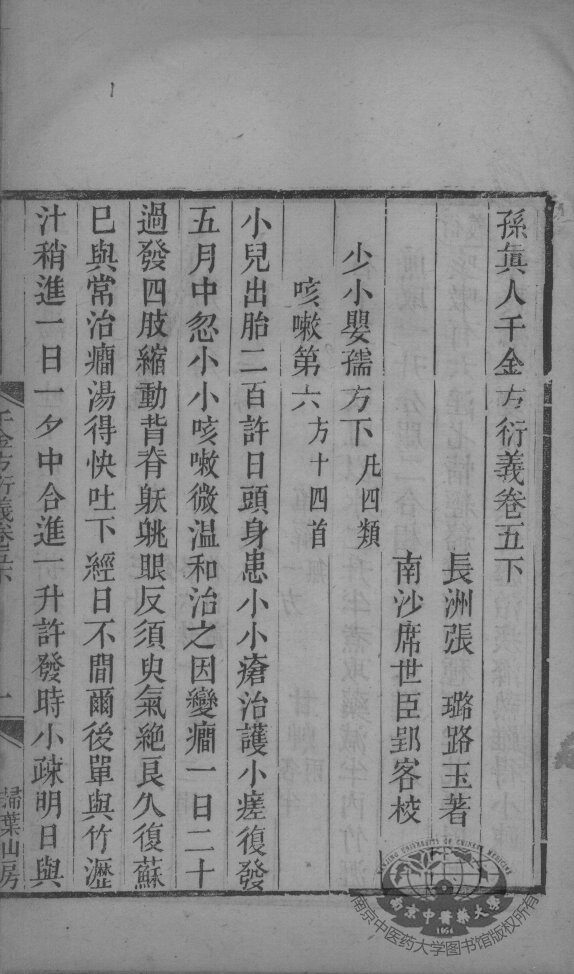 孫眞人千金方衍義卷五下
長洲張 璐路玉著
南沙席世臣郢客校
少小嬰孺方下凡四類
咳嗽第六方十四首
小兒出胎二百許日頭身患小小瘡治護小瘥復發
五月中忽小小咳嗽微温和治之因變癎一日二十
過發四肢縮動背脊䠶眼反須臾氣絶良久復蘇
已與常治癎湯得快吐下經日不間爾後單與竹瀝
汁稍進一日一夕中合進一升許發時小疎明日與
千金方衍義卷五下
一
掃葉山房
NANJING UNIVERSITY OF CHINESE MEDICINE
南京中醫藥大學
1954
南京中医药大学图书馆版权所有